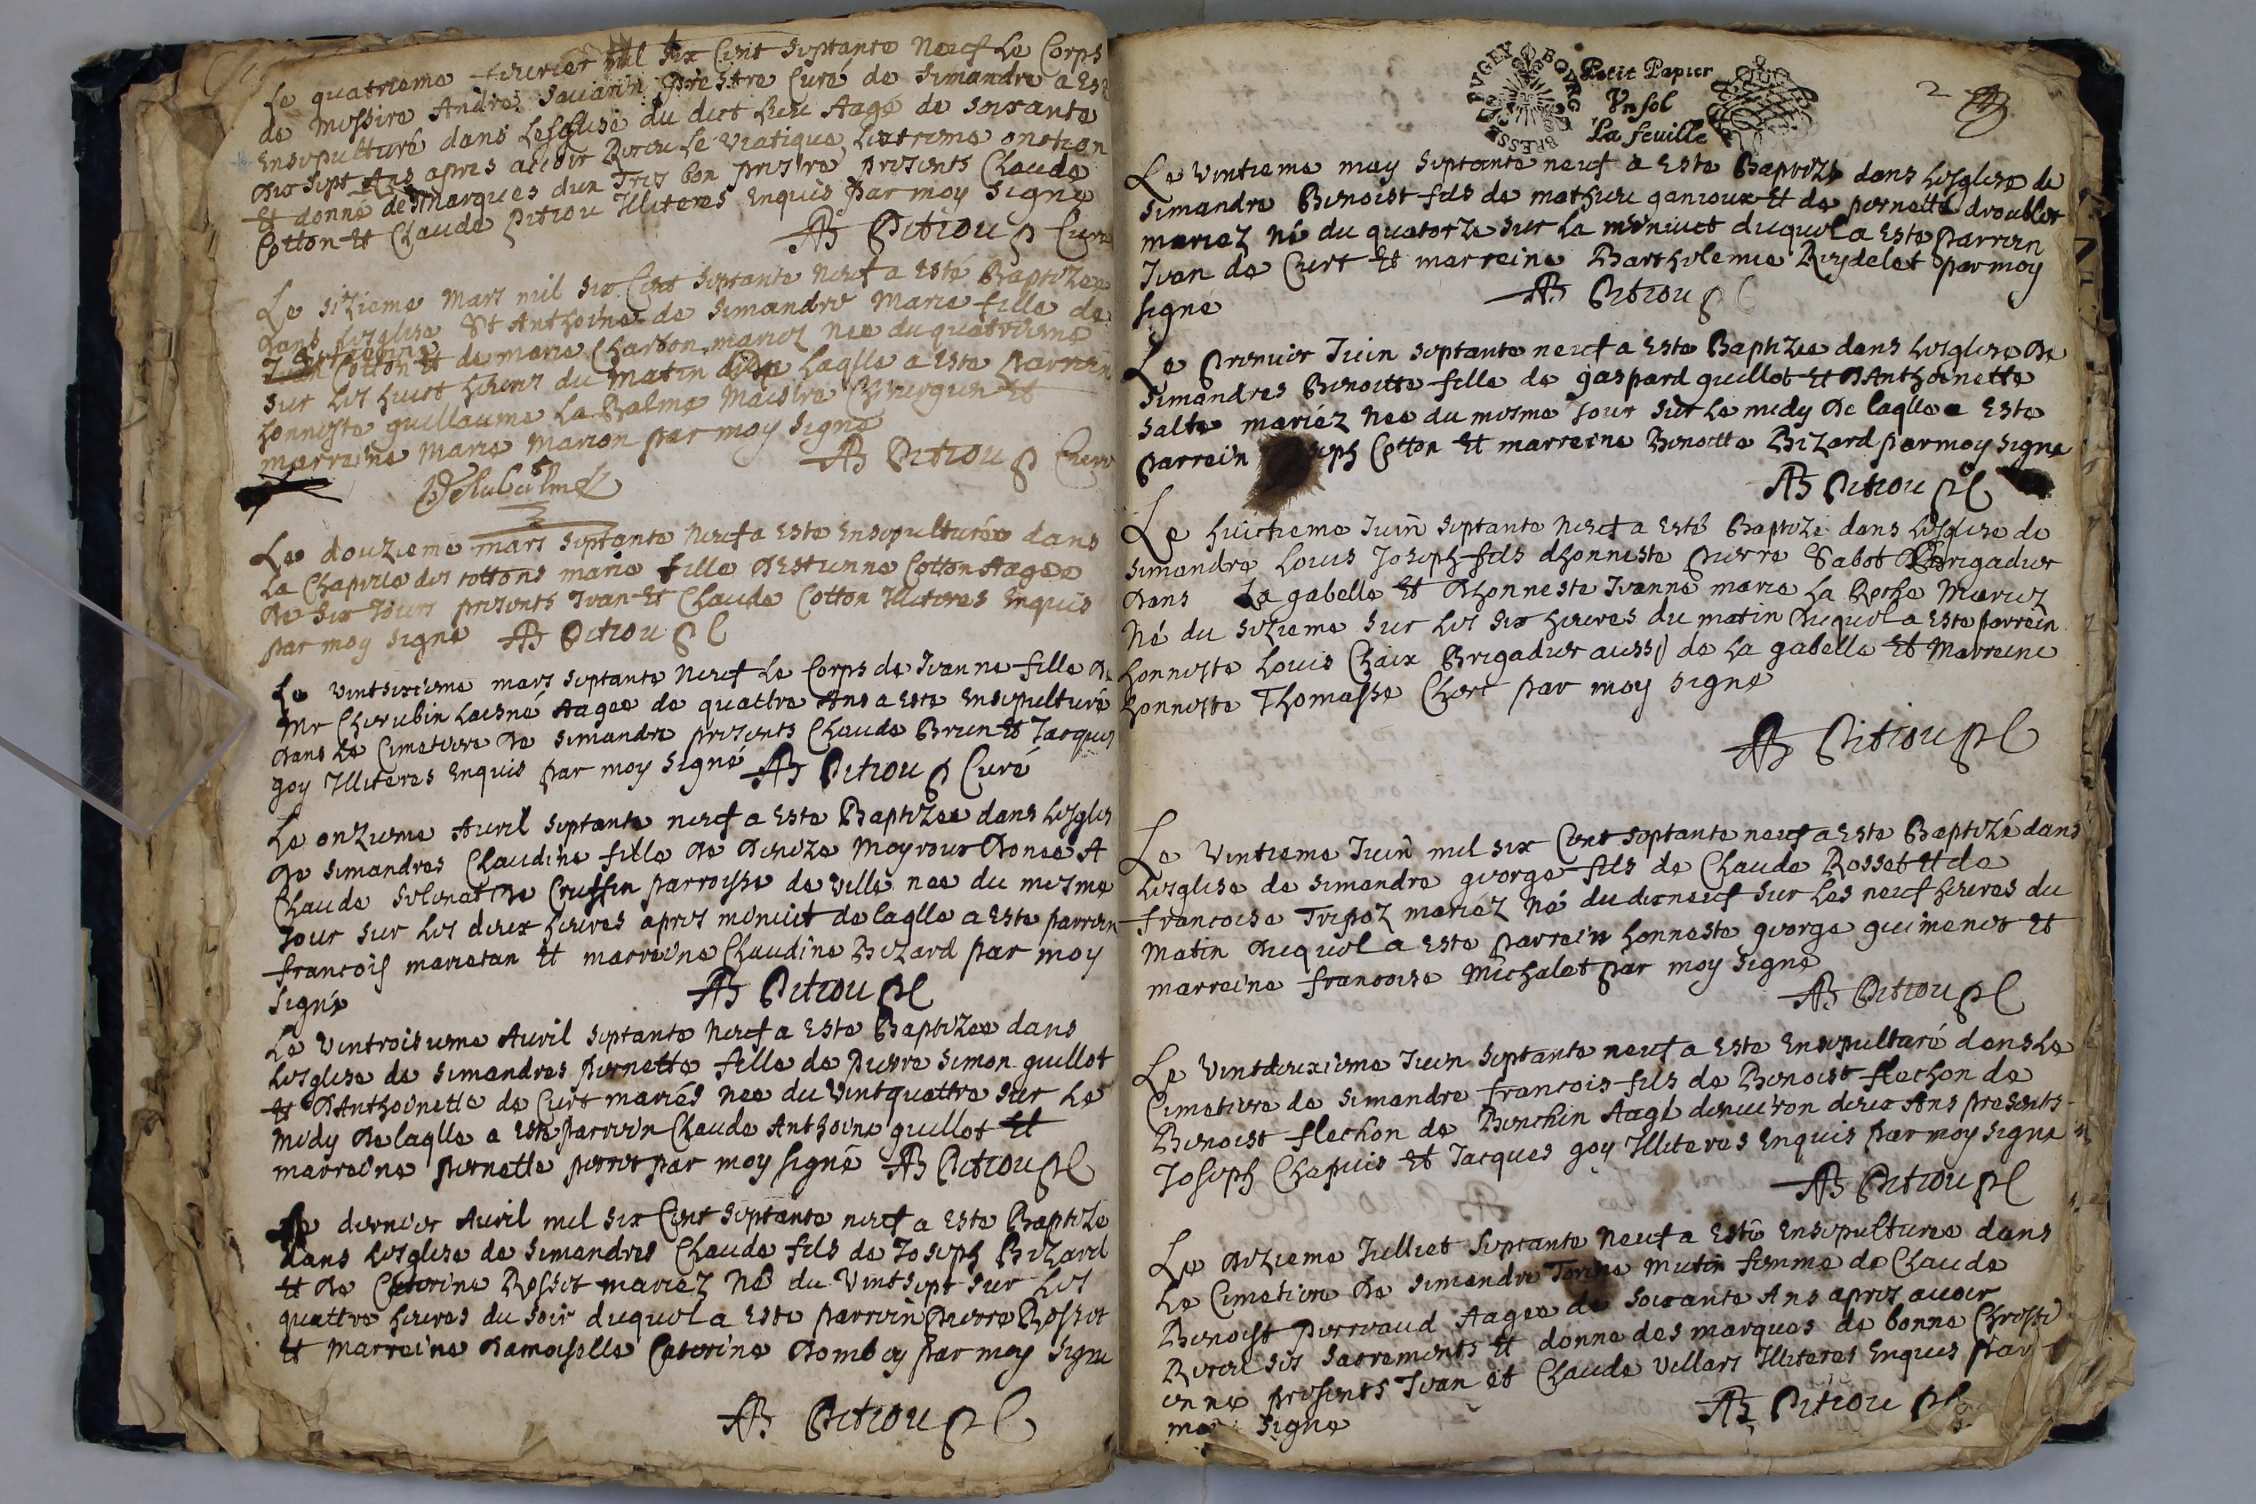 Le quatrieme feurier mil six Cent septante neuf Le Corps
de messire André Sauarin prestre Curé de simandre a est
Ensepulturé dans Lesglise du dict lieu Aagé de soixante
dix sept Ans apres auoir Receu Le Viatique Lextreme onction
Et donné des marques dun Tres bon prestre presents Claude
Cotton Et Claude Pitiou Illiteres Enquis par moy signé
Pitiou Curé
Le sizieme Mars mil six Cent septante neuf a esté Baptizee
dans Lesglise St Anthoine de simandre Marie fille de
Cotton Et de marie Charbon mariez nee du quatrieme
sur les huict heures du matin de Laqlle a este Parrain
honneste guillaume La Balme Maistre Chirurgien Et
marreine Marie Marion par moy signé
Pitiou Curé
Delabalme
Le douzieme mars septante neuf a este Ensepulturée dans
La Chapelle des cottons marie fille dEstienne Cotton Aagee
de six Jours presents Jean Et Claude Cotton Illiteres Enquis
par moy signé Pitiou
Le vintsixieme mars septante neuf Le Corps de Jeanne fille de
Mr Cherubin Laisné Aagee de quattre Ans a este Ensepulturé
dans Le Cimetiere de simandre presents Claude Brun Et Jacques
goy Illiteres Enquis par moy signé Pitiou Curé
Le onzieme Auril septante neuf a este Baptizee dans Lesglis
de simandres Claudine fille de denize Moyroux donee A
Claude Solonat de Cuffin parroisse de Ville nee du mesme
Jour sur les deux heures apres minuit de laqlle a este parrain
francois marietan Et marreine Claudine Bizard par moy
signé Pitiou
Le Vintroisieme Auril septante neuf a este Baptizee dans
Lesglise de simandres pernette fille de pierre simon guillot
Et dAnthoinette de Curt mariés nee du Vintquattre sur Le
midy de laqlle a este parrein Claude Anthoine guillot Et
marreine pernette perret par moy signé Pitiou
Le dernier Auril mil six Cent septante neuf a este Baptize
dans Lesglise de simandres Claude fils de Joseph Bizard
Et de Caterine Rosset mariez Né du Vintsept sur Les
quattre heures du soir duquel a este parrein Pierre Rosset
Et Marreine damoiselle Caterine dombey par moy signé
Pitiou
BOVRG BRESSE PVGEY
Petit Papier
Vn sol
La feuille
2
Le Vintieme may septante neuf a Este Baptize dans Lesglise de
simandre Benoist fils de mathieu ganioux Et de pernette droublet
mariez né du quatorze sur La minuict duquel a Este parrein
Jean de Curt Et marreine Bartholemie Reydelet par moy
signé Pitiou
Le premier Juin septante neuf a Este Baptizee dans Lesglise de
simandres Benoitte fille de gaspard guillot Et dAnthoinette
salte mariéz nee du mesme Jour sur Le midy de laqlle a Este
parrein Joseph Cotton Et marreine Benoitte Bizard par moy signe
Pitiou
Le huictieme Juin septante neuf a esté Baptize dans Lesglise de
simandre Louis Joseph fils dhonneste pierre Sabot Brigadier
dans La gabelle Et dhonneste Jeanne marie La Roche Mariez
Né du sizieme sur les six heures du matin duquel a Este parrein
honneste Louis Chaix Brigadier aussi de La gabelle Et Marreine
honneste Thomasse Chert par moy signé
Pitiou
Le Vintieme Juin mil six Cent septante neuf a este Baptizé dans
Lesglise de simandre george fils de Claude Rosset Et de
francoise Tripoz mariez Né du dixneuf sur Les neuf heures du
Matin duquel a este parrein honneste george guimenet Et
marreine francoise Michalet par moy signé
Pitiou
Le Vintdeuxieme Juin septante neuf a este Ensepulturé dans Le
Cimetiere de simandre francois fils de Benoist flechon de
Benoist flechon de Banchin Aagé denuiron deux Ans presents
Joseph Chapuis Et Jacques goy Illiteres Enquis par moy signe
Pitiou
Le dizieme Juillet septante neuf a este Ensepulturee dans
Le Cimetiere de simandre Mutin femme de Claude
Benoist perreaud Aagee de soixante Ans apres auoir
Receu ses sacrements Et donne des marques de bonne Chresti
enne presents Jean et Claude Villars Illiteres Enquis par
moy signe
Pitiou